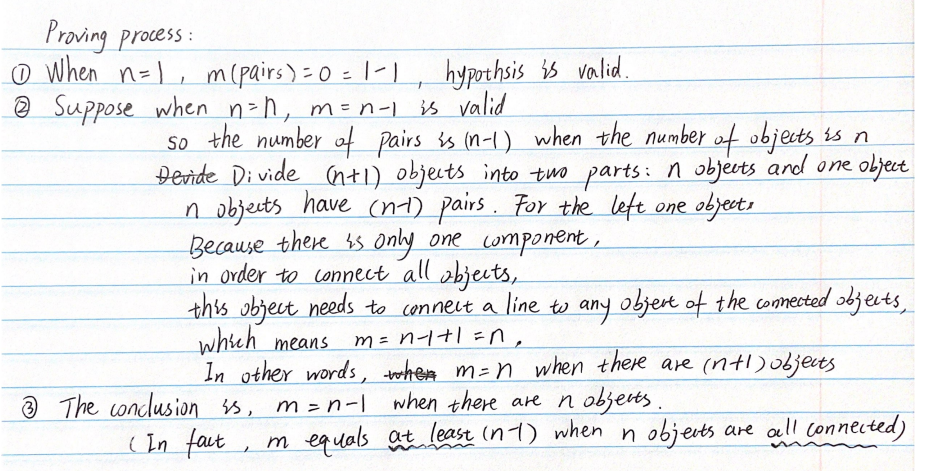 Proving process:
① When n=1, m(pairs)=0=1-1, hypothsis is valid.
② Suppose when n=n, m=n-1 is valid
so the number of pairs is (n-1) when the number of objects is n
Devide Divide (n+1) objects into two parts: n objects and one object
n objects have (n-1) pairs. For the left one object,
Because there is only one component,
in order to connect all objects,
this object needs to connect a line to any object of the connected objects,
which means m=n-1+1=n,
In other words, when m=n when there are (n+1) objects
③ The conclusion is, m=n-1 when there are n objects.
(In fact, m equals at least (n-1) when n objects are all connected)